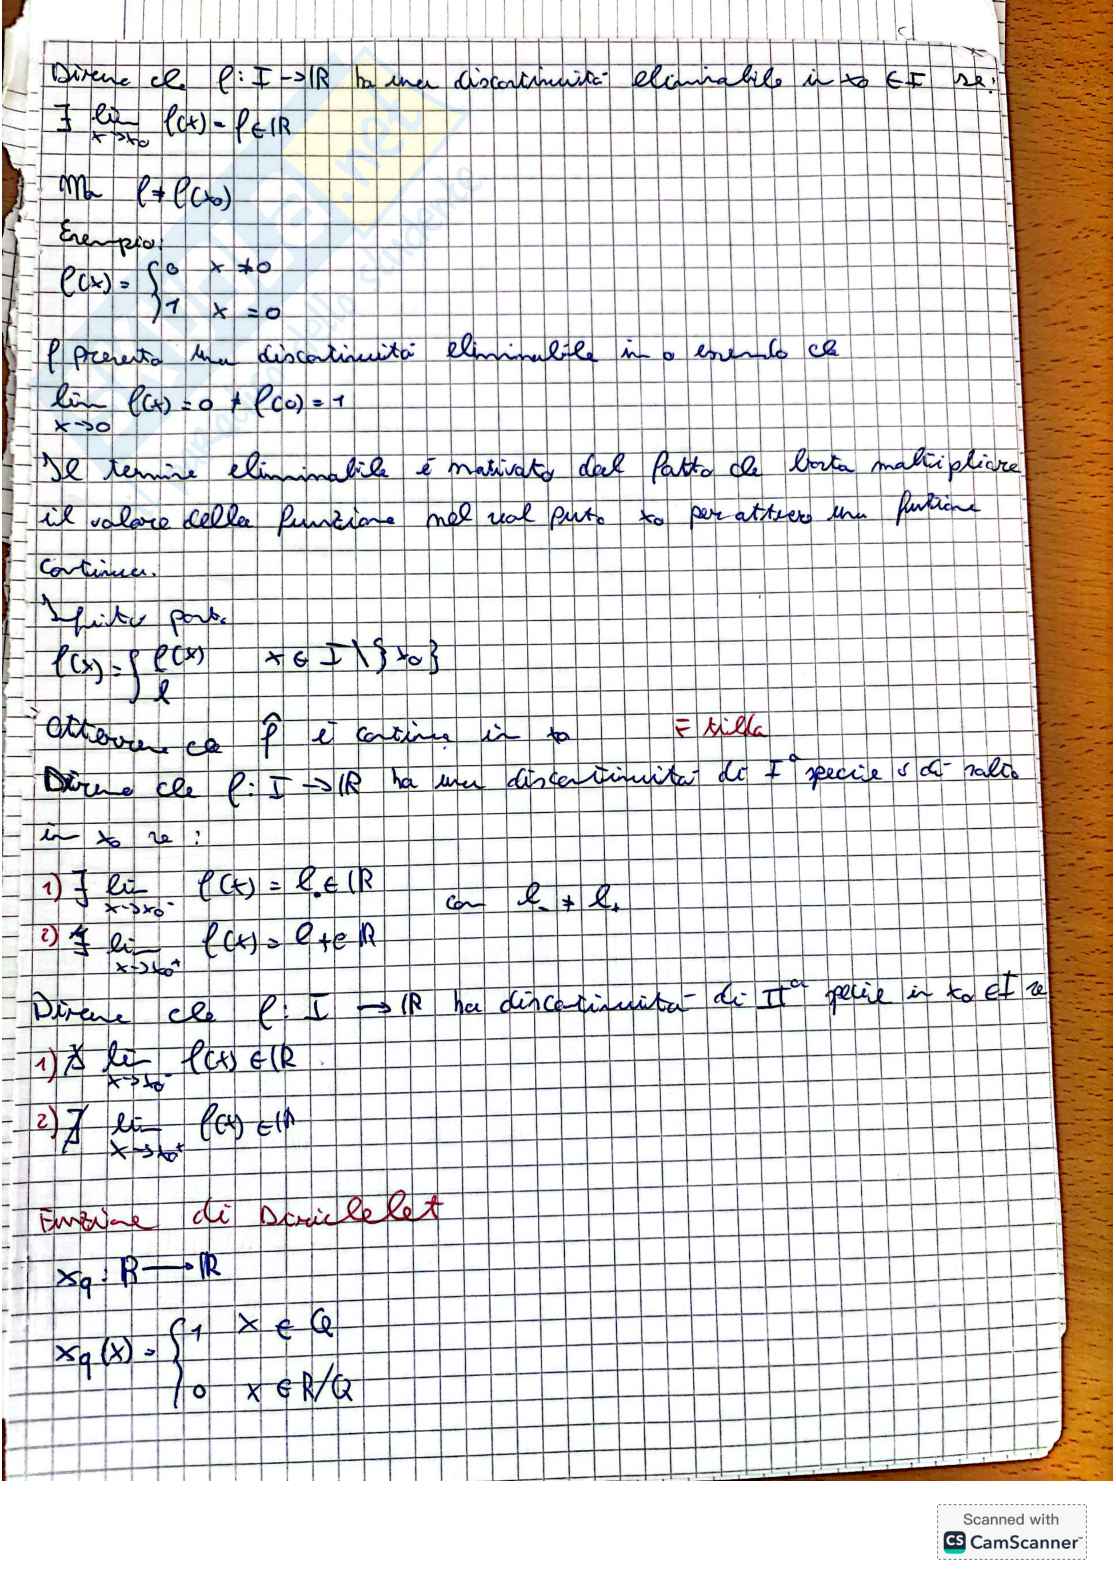 Diremo che f: I → ℝ ha una discontinuità eliminabile in x₀ ∈ I se:
∃ lim x→x₀ f(x) = l ∈ ℝ
Ma l ≠ f(x₀)
Esempio:
f(x) = { 0 x ≠ 0
1 x = 0
f presenta una discontinuità eliminabile in 0 essendo che
lim x→0 f(x) = 0 ≠ f(0) = 1
Il termine eliminabile è motivato dal fatto che basta moltiplicare
il valore della funzione nel punto x₀ per ottenere una funzione
continua.
f(x) = { f(x) x ∈ I \ {x₀}
l
Otteniamo che f̂ è continua in x₀ = tilda
Diremo che f: I → ℝ ha una discontinuità di I° specie o di salto
in x₀ se:
1) ∃ lim x→x₀⁻ f(x) = l₋ ∈ ℝ con l₋ ≠ l₊
2) ∃ lim x→x₀⁺ f(x) = l₊ ∈ ℝ
Diremo che f: I → ℝ ha discontinuità di IIᵃ specie in x₀ ∈ I se
1) ∄ lim x→x₀⁻ f(x) ∈ ℝ
2) ∄ lim x→x₀⁺ f(x) ∈ ℝ
Funzione di Diriclelet
x_q : ℝ → ℝ
x_q (x) = { 1 x ∈ Q
0 x ∈ R/Q
Scanned with
CS CamScanner